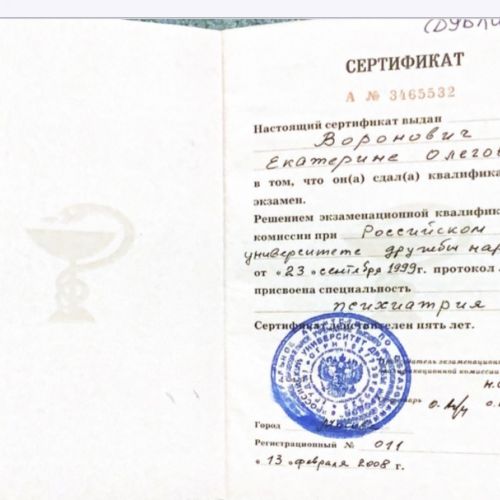 (ДУБЛИ
СЕРТИФИКАТ
А № 3465532
Настоящий сертификат выдан
Воронович
Екатерине Олегов
в том, что он(а) сдал(а) квалифика
экзамен.
Решением экзаменационной квалифик
комиссии при Российском
университете дружбы нар
от «23» сентября 1999г. протокол
присвоена специальность
психиатрия
Сертификат действителен пять лет.
экзаменацион
комиссии
Город
Регистрационный № 011
«13» февраля 2008 г.